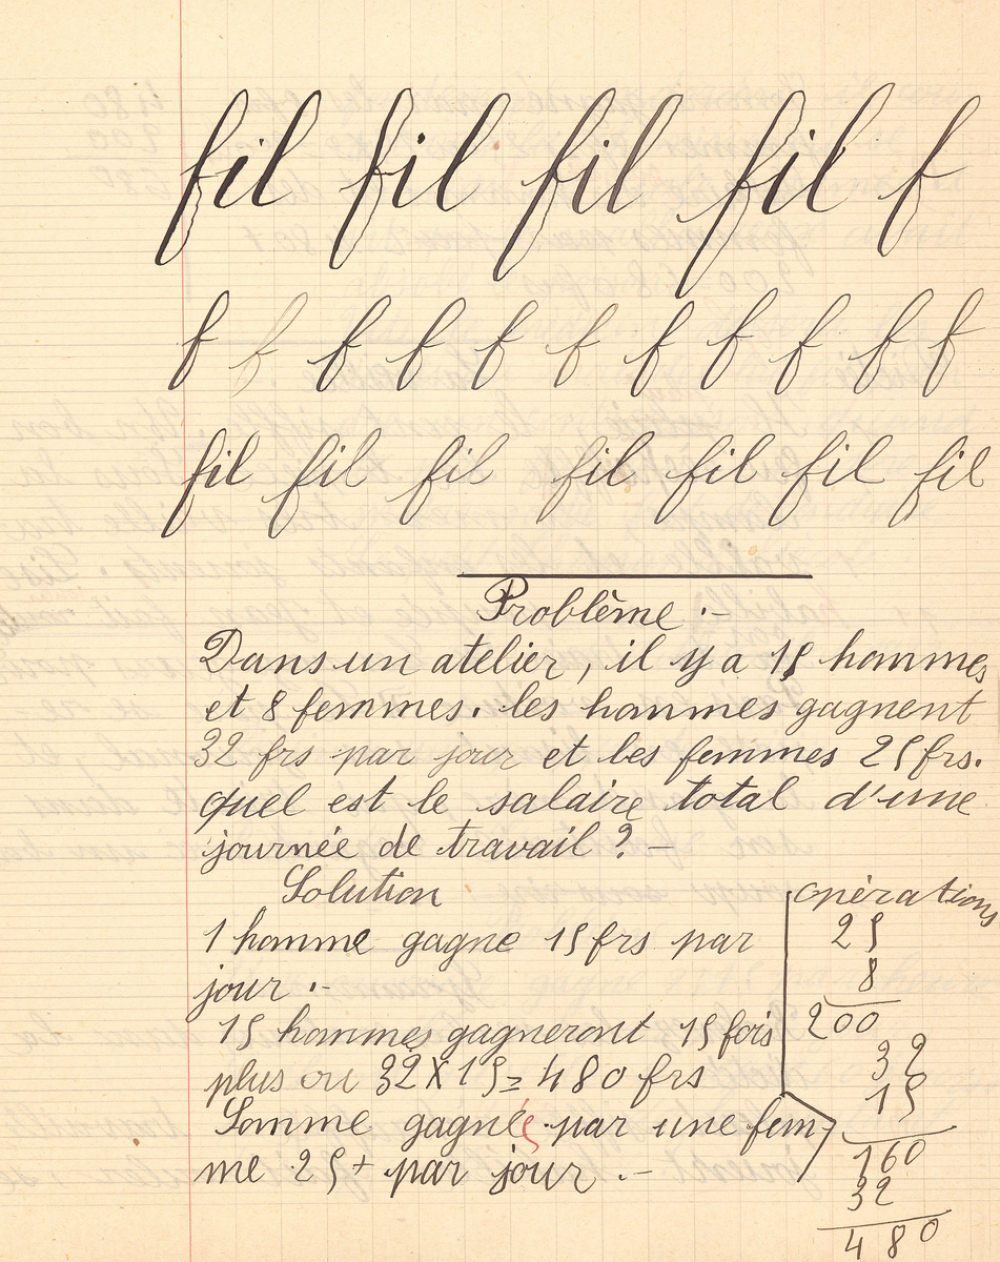 fil fil fil fil f
f f f f f f f f f f f
fil fil fil fil fil fil fil
Problème .-
Dans un atelier, il y a 15 hommes
et 8 femmes. les hommes gagnent
32 frs par jour et les femmes 25 frs.
quel est le salaire total d'une
journée de travail ? -
Solution
1 homme gagne 15 frs par
jour .-
15 hommes gagneront 15 fois
plus ou 32 X 15 = 480 frs
Somme gagnée par une fem
me 25 f par jour .-
opérations
25
8
200
32
15
160
32
480